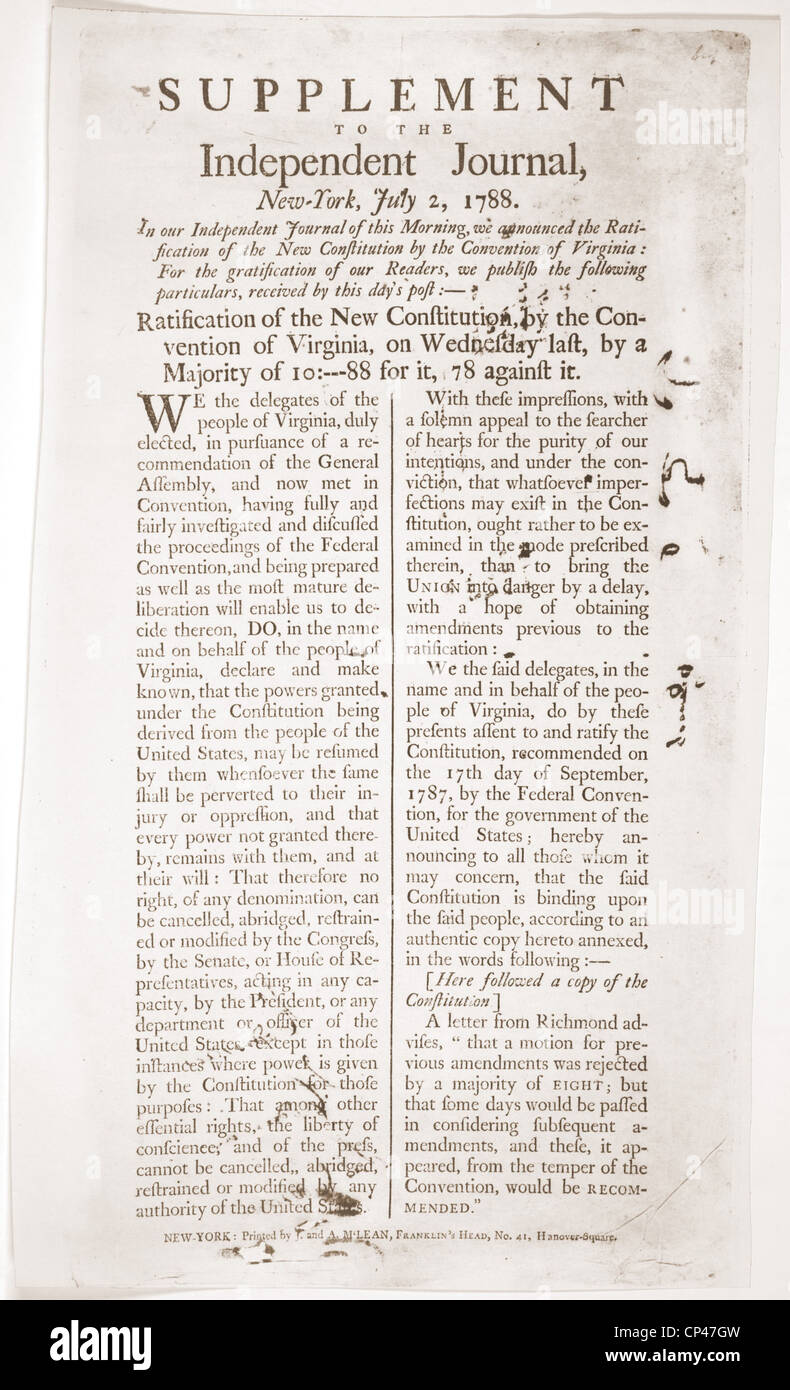 SUPPLEMENT
TO THE
Independent Journal,
New-York, July 2, 1788.
In our Independent Journal of this Morning, we announced the Rati-
fication of the New Conſtitution by the Convention of Virginia:
For the gratification of our Readers, we publiſh the following
particulars, received by this day's poſt:—
Ratification of the New Conſtitution, by the Con-
vention of Virginia, on Wedneſday laſt, by a
Majority of 10:---88 for it, 78 againſt it.
WE the delegates of the
people of Virginia, duly
elected, in purſuance of a re-
commendation of the General
Aſſembly, and now met in
Convention, having fully and
fairly inveſtigated and diſcuſſed
the proceedings of the Federal
Convention, and being prepared
as well as the moſt mature de-
liberation will enable us to de-
cide thereon, DO, in the name
and on behalf of the people of
Virginia, declare and make
known, that the powers granted
under the Conſtitution being
derived from the people of the
United States, may be reſumed
by them whenſoever the ſame
ſhall be perverted to their in-
jury or oppreſſion, and that
every power not granted there-
by, remains with them, and at
their will: That therefore no
right, of any denomination, can
be cancelled, abridged, reſtrain-
ed or modified by the Congreſs,
by the Senate, or Houſe of Re-
preſentatives, acting in any ca-
pacity, by the Preſident, or any
department or officer of the
United States, except in thoſe
inſtances where power is given
by the Conſtitution for thoſe
purpoſes: That among other
eſſential rights, the liberty of
conſcience, and of the preſs,
cannot be cancelled, abridged,
reſtrained or modified by any
authority of the United States.
With theſe impreſſions, with
a ſolemn appeal to the ſearcher
of hearts for the purity of our
intentions, and under the con-
viction, that whatſoever imper-
fections may exiſt in the Con-
ſtitution, ought rather to be ex-
amined in the mode preſcribed
therein, than to bring the
UNION into danger by a delay,
with a hope of obtaining
amendments previous to the
ratification:
We the ſaid delegates, in the
name and in behalf of the peo-
ple of Virginia, do by theſe
preſents aſſent to and ratify the
Conſtitution, recommended on
the 17th day of September,
1787, by the Federal Conven-
tion, for the government of the
United States; hereby an-
nouncing to all thoſe whom it
may concern, that the ſaid
Conſtitution is binding upon
the ſaid people, according to an
authentic copy hereto annexed,
in the words following:—
[Here followed a copy of the
Conſtitution]
A letter from Richmond ad-
viſes, " that a motion for pre-
vious amendments was rejected
by a majority of EIGHT; but
that ſome days would be paſſed
in conſidering ſubſequent a-
mendments, and theſe, it ap-
peared, from the temper of the
Convention, would be RECOM-
MENDED."
NEW-YORK: Printed by J. and A. M'LEAN, FRANKLIN'S HEAD, No. 41, Hanover-Square.
alamy
alamy
alamy
Image ID: CP47GW
www.alamy.com